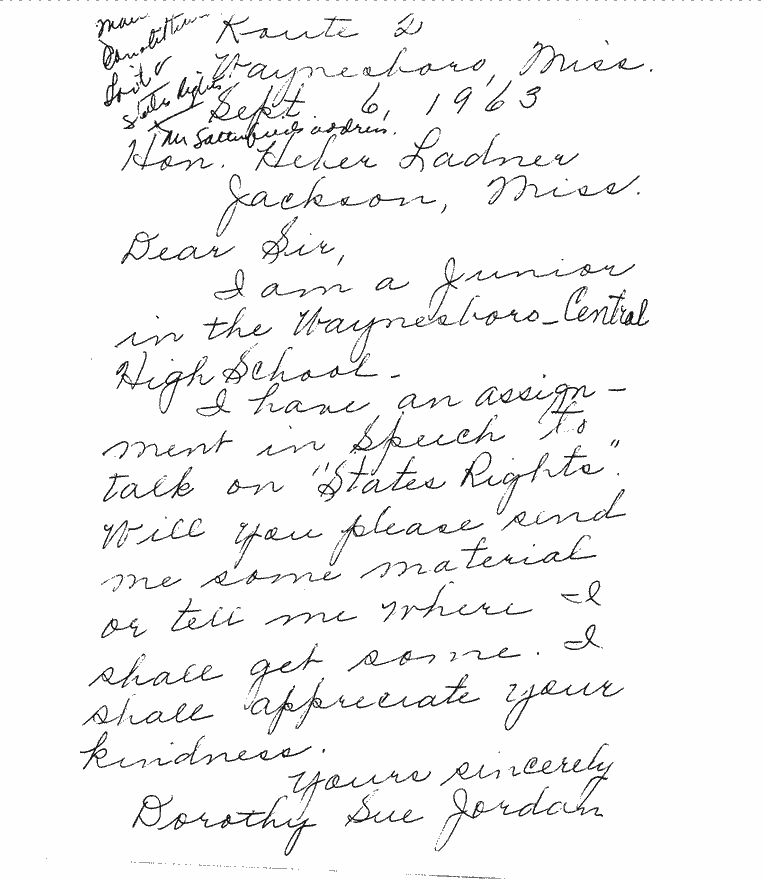 Mail
Constitution
States Rights
Mr Satterfield's address.
Route 2
Waynesboro, Miss.
Sept. 6, 1963
Hon. Heber Ladner
Jackson, Miss.
Dear Sir,
I am a Junior
in the Waynesboro-Central
High School-
I have an assign-
ment in Speech to
talk on "States Rights".
Will you please send
me some material
or tell me where I
shall get some. I
shall appreciate your
kindness.
Yours sincerely
Dorothy Sue Jordan